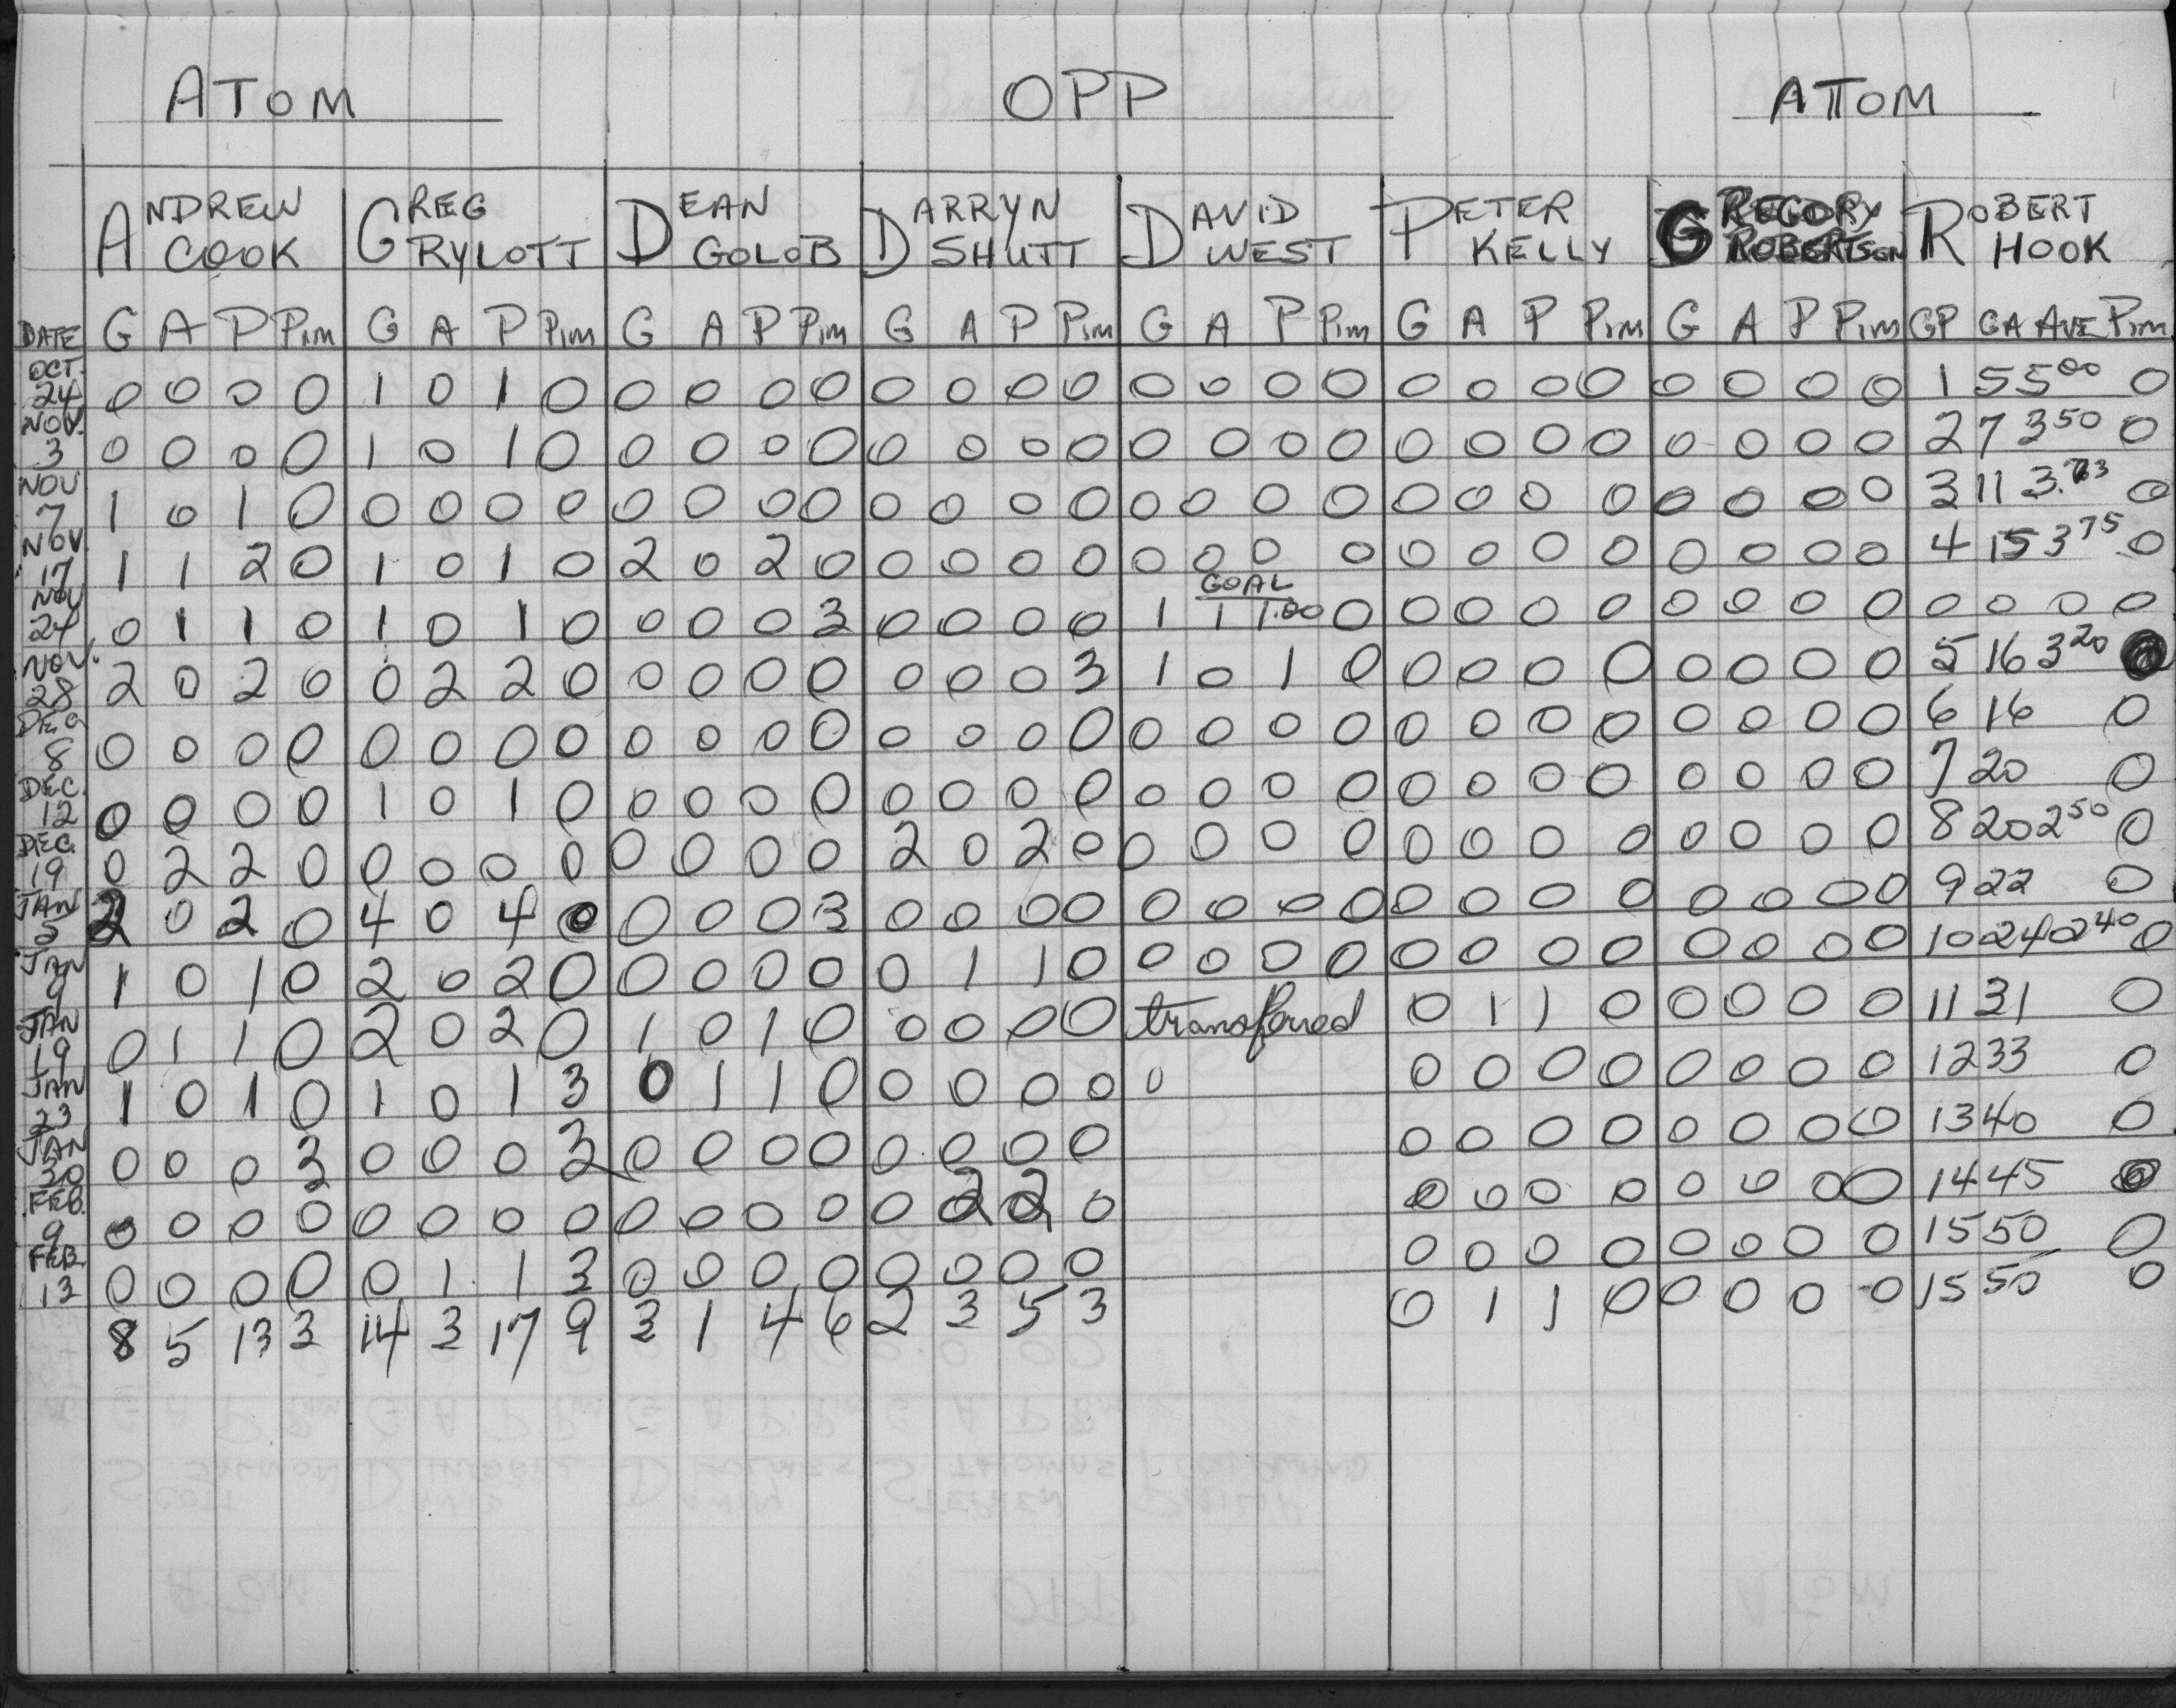 ATOM OPP ATOM
ANDREW GREG DEAN DARRYN DAVID PETER GREGORY ROBERT
COOK RYLOTT GOLOB SHUTT WEST KELLY ROBERTSON HOOK
DATE G A P PIM G A P PIM G A P PIM G A P PIM G A P PIM G A P PIM G A P PIM GP GA AVE PIM
OCT. 24 0 0 0 0 1 0 1 0 0 0 0 0 0 0 0 0 0 0 0 0 0 0 0 0 0 0 0 0 1 5 5 00 0
NOV. 3 0 0 0 0 1 0 1 0 0 0 0 0 0 0 0 0 0 0 0 0 0 0 0 0 0 0 0 0 2 7 3 50 0
NOV 7 1 0 1 0 0 0 0 0 0 0 0 0 0 0 0 0 0 0 0 0 0 0 0 0 0 0 0 0 3 11 0
NOV. 17 1 1 2 0 1 0 1 0 2 0 2 0 0 0 0 0 0 0 0 0 0 0 0 0 0 0 0 0 4 15 3 75 0
GOAL
NOV 24 0 1 1 0 1 0 1 0 0 0 0 3 0 0 0 0 1 1 1.00 0 0 0 0 0 0 0 0 0 0 0 0 0
NOV. 28 2 0 2 0 0 2 2 0 0 0 0 0 0 0 0 3 1 0 1 0 0 0 0 0 0 0 0 0 5 16 3 20
DEC 8 0 0 0 0 0 0 0 0 0 0 0 0 0 0 0 0 0 0 0 0 0 0 0 0 0 0 0 0 6 16 0
DEC. 12 0 0 0 0 1 0 1 0 0 0 0 0 0 0 0 0 0 0 0 0 0 0 0 0 0 0 0 0 7 20 0
DEC. 19 0 2 2 0 0 0 0 0 0 0 0 0 2 0 2 0 0 0 0 0 0 0 0 0 0 0 0 0 8 20 2 50 0
JAN 2 2 0 2 0 4 0 4 0 0 0 0 3 0 0 0 0 0 0 0 0 0 0 0 0 0 0 0 0 9 22 0
JAN 9 1 0 1 0 2 0 2 0 0 0 0 0 0 1 1 0 0 0 0 0 0 0 0 0 0 0 0 0 10 24 0 2 40 0
JAN 19 0 1 1 0 2 0 2 0 1 0 1 0 0 0 0 0 transferred 0 1 1 0 0 0 0 0 11 31 0
JAN 23 1 0 1 0 1 0 1 3 0 1 1 0 0 0 0 0 0 0 0 0 0 0 0 0 0 12 33 0
JAN 30 0 0 0 3 0 0 0 3 0 0 0 0 0 0 0 0 0 0 0 0 0 0 0 0 13 40 0
FEB. 9 0 0 0 0 0 0 0 0 0 0 0 0 0 2 2 0 0 0 0 0 0 0 0 0 14 45 0
FEB. 13 0 0 0 0 0 1 1 3 0 0 0 0 0 0 0 0 0 0 0 0 0 0 0 0 15 50 0
8 5 13 3 14 3 17 9 3 1 4 6 2 3 5 3 0 1 1 0 0 0 0 0 15 50 0